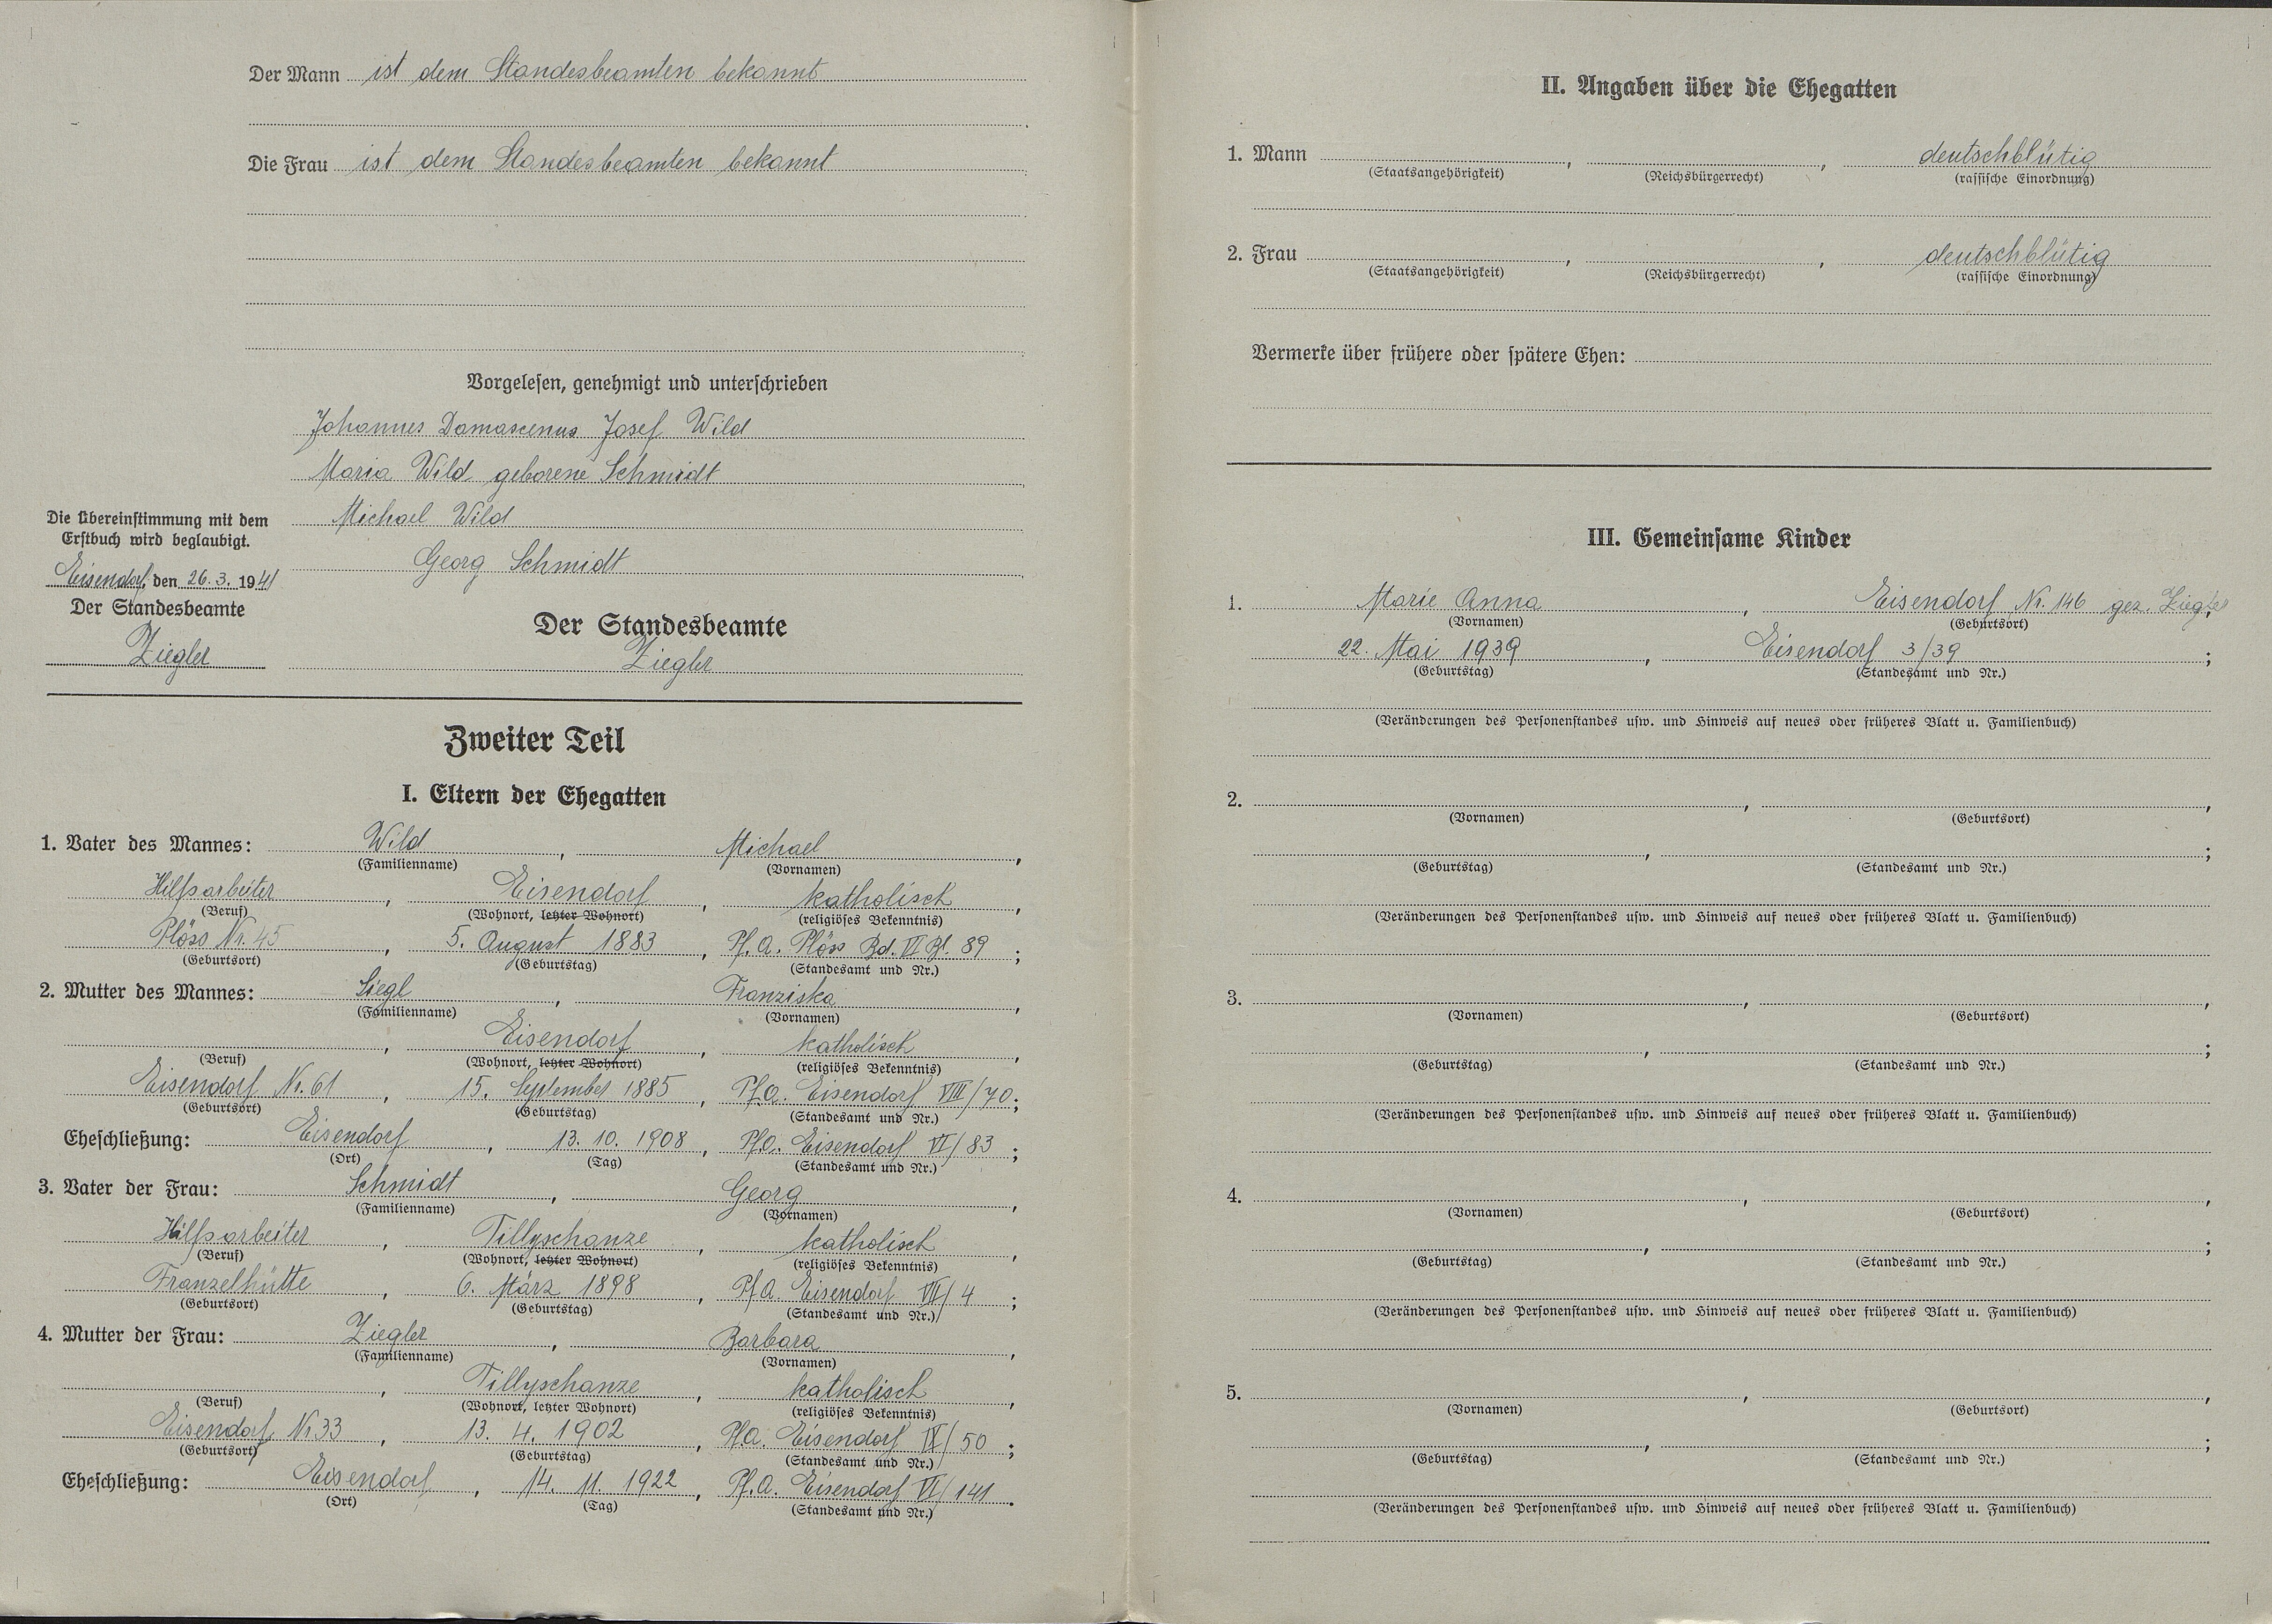 Der Mann ist dem Standesbeamten bekannt
Die Frau ist dem Standesbeamten bekannt
Vorgelesen, genehmigt und unterschrieben
Johannes Damascenus Josef Wild
Maria Wild geborene Schmidt
Michael Wild
Georg Schmidt
Die Übereinstimmung mit dem
Erstbuch wird beglaubigt.
Eisendorf, den 26.3. 1941
Der Standesbeamte
Ziegler
Der Standesbeamte
Ziegler
Zweiter Teil
I. Eltern der Ehegatten
1. Vater des Mannes: Wild, Michael,
(Familienname) (Vornamen)
Hilfsarbeiter, Eisendorf, katholisch,
(Beruf) (Wohnort, letzter Wohnort) (religiöses Bekenntnis)
Plöss Nr. 45, 5. August 1883, Pf.A. Plöss Bd. VI Bl. 89;
(Geburtsort) (Geburtstag) (Standesamt und Nr.)
2. Mutter des Mannes: Siegl, Franziska,
(Familienname) (Vornamen)
, Eisendorf, katholisch,
(Beruf) (Wohnort, letzter Wohnort) (religiöses Bekenntnis)
Eisendorf Nr. 61, 15. September 1885, Pf.A. Eisendorf VIII/70;
(Geburtsort) (Geburtstag) (Standesamt und Nr.)
Eheschließung: Eisendorf, 13. 10. 1908, Pf.A. Eisendorf VI/83;
(Ort) (Tag) (Standesamt und Nr.)
3. Vater der Frau: Schmidt, Georg,
(Familienname) (Vornamen)
Hilfsarbeiter, Tillyschanze, katholisch,
(Beruf) (Wohnort, letzter Wohnort) (religiöses Bekenntnis)
Franzelhütte, 6. März 1898, Pf.A. Eisendorf VII/4;
(Geburtsort) (Geburtstag) (Standesamt und Nr.)
4. Mutter der Frau: Ziegler, Barbara,
(Familienname) (Vornamen)
, Tillyschanze, katholisch,
(Beruf) (Wohnort, letzter Wohnort) (religiöses Bekenntnis)
Eisendorf Nr 33, 13. 4. 1902, Pf.A. Eisendorf IX/50;
(Geburtsort) (Geburtstag) (Standesamt und Nr.)
Eheschließung: Eisendorf, 14. 11. 1922, Pf.A. Eisendorf VI/141.
(Ort) (Tag) (Standesamt und Nr.)
II. Angaben über die Ehegatten
1. Mann , , deutschblütig
(Staatsangehörigkeit) (Reichsbürgerrecht) (rassische Einordnung)
2. Frau , , deutschblütig
(Staatsangehörigkeit) (Reichsbürgerrecht) (rassische Einordnung)
Vermerke über frühere oder spätere Ehen:
III. Gemeinsame Kinder
1. Marie Anna, Eisendorf Nr. 146 gez. Ziegler,
(Vornamen) (Geburtsort)
22. Mai 1939, Eisendorf 3/39;
(Geburtstag) (Standesamt und Nr.)
(Veränderungen des Personenstandes usw. und Hinweis auf neues oder früheres Blatt u. Familienbuch)
2. , ,
(Vornamen) (Geburtsort)
, ;
(Geburtstag) (Standesamt und Nr.)
(Veränderungen des Personenstandes usw. und Hinweis auf neues oder früheres Blatt u. Familienbuch)
3. , ,
(Vornamen) (Geburtsort)
, ;
(Geburtstag) (Standesamt und Nr.)
(Veränderungen des Personenstandes usw. und Hinweis auf neues oder früheres Blatt u. Familienbuch)
4. , ,
(Vornamen) (Geburtsort)
, ;
(Geburtstag) (Standesamt und Nr.)
(Veränderungen des Personenstandes usw. und Hinweis auf neues oder früheres Blatt u. Familienbuch)
5. , ,
(Vornamen) (Geburtsort)
, ;
(Geburtstag) (Standesamt und Nr.)
(Veränderungen des Personenstandes usw. und Hinweis auf neues oder früheres Blatt u. Familienbuch)